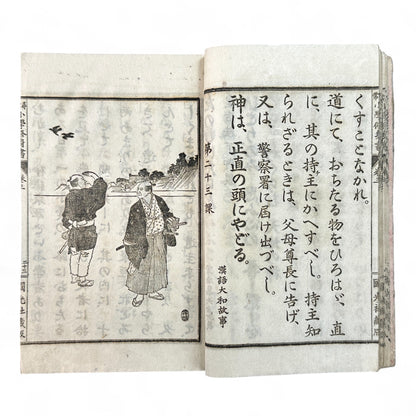 くすことなかれ。
道にて、おちたる物をひろはゞ、直
に、其の持主にかへすべし。持主知
られざるときは、父母尊長に告げ、
又は、警察署に届け出づべし。
第二十三課
神は、正直の頭にやどる。
漢語大和故事